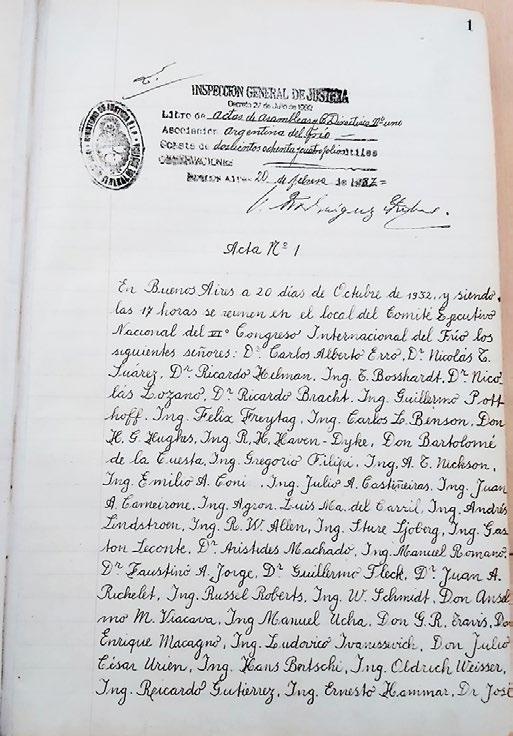 1
INSPECCIÓN GENERAL DE JUSTICIA
Decreto 27 de Julio de 1932
Libro de Actas de Asambleas y C. Directiva Nº uno
Asociación Argentina del Frío —
Consta de doscientos ochenta y cuatro folios útiles
OBSERVACIONES
BUENOS AIRES 20 de febrero de 1937=
Acta Nº 1
En Buenos Aires a 20 dias de Octubre de 1932, y siendo
las 17 horas se reunen en el local del Comité Ejecutivo
Nacional del VIº Congreso Internacional del Frio los
siguientes señores: Dr. Carlos Alberto Erro, Dr. Nicolás C.
Suárez, Dr. Ricardo Helman, Ing. E. Bosshardt, Dr. Nico-
lás Lozano, Dr. Ricardo Bracht, Ing. Guillermo Pott-
hoff, Ing. Felix Freytag, Ing. Carlos L. Benson, Don
H. G. Hughes, Ing. R. H. Haven-Dyke, Don Bartolomé
de la Cuesta, Ing. Gregorio Filipi, Ing. A. C. Nickson,
Ing. Emilio A. Coni, Ing. Julio A. Castiñeiras, Ing. Juan
A. Cameirone, Ing. Agron. Luis Ma. del Carril, Ing. Andrés
Lindstroem, Ing. R. W. Allen, Ing. Sture Sjoberg, Ing. Gas-
ton Leconte, Dr. Aristides Machado, Ing. Manuel Romano.-
Dr. Faustino A. Jorge, Dr. Guillermo Fleck, Dr. Juan A.
Richelet, Ing. Russel Roberts, Ing. W. Schmidt, Don Ansel-
mo M. Viacava, Ing Manuel Ucha, Don G. R. Eravis, Don
Enrique Macagno, Ing. Ludovico Ivanissivich, Don Julio
César Urien, Ing. Hans Bertschi, Ing. Oldrich Weisser,
Ing. Reicardo Gutierrez, Ing. Ernesto Hammar, Dr José